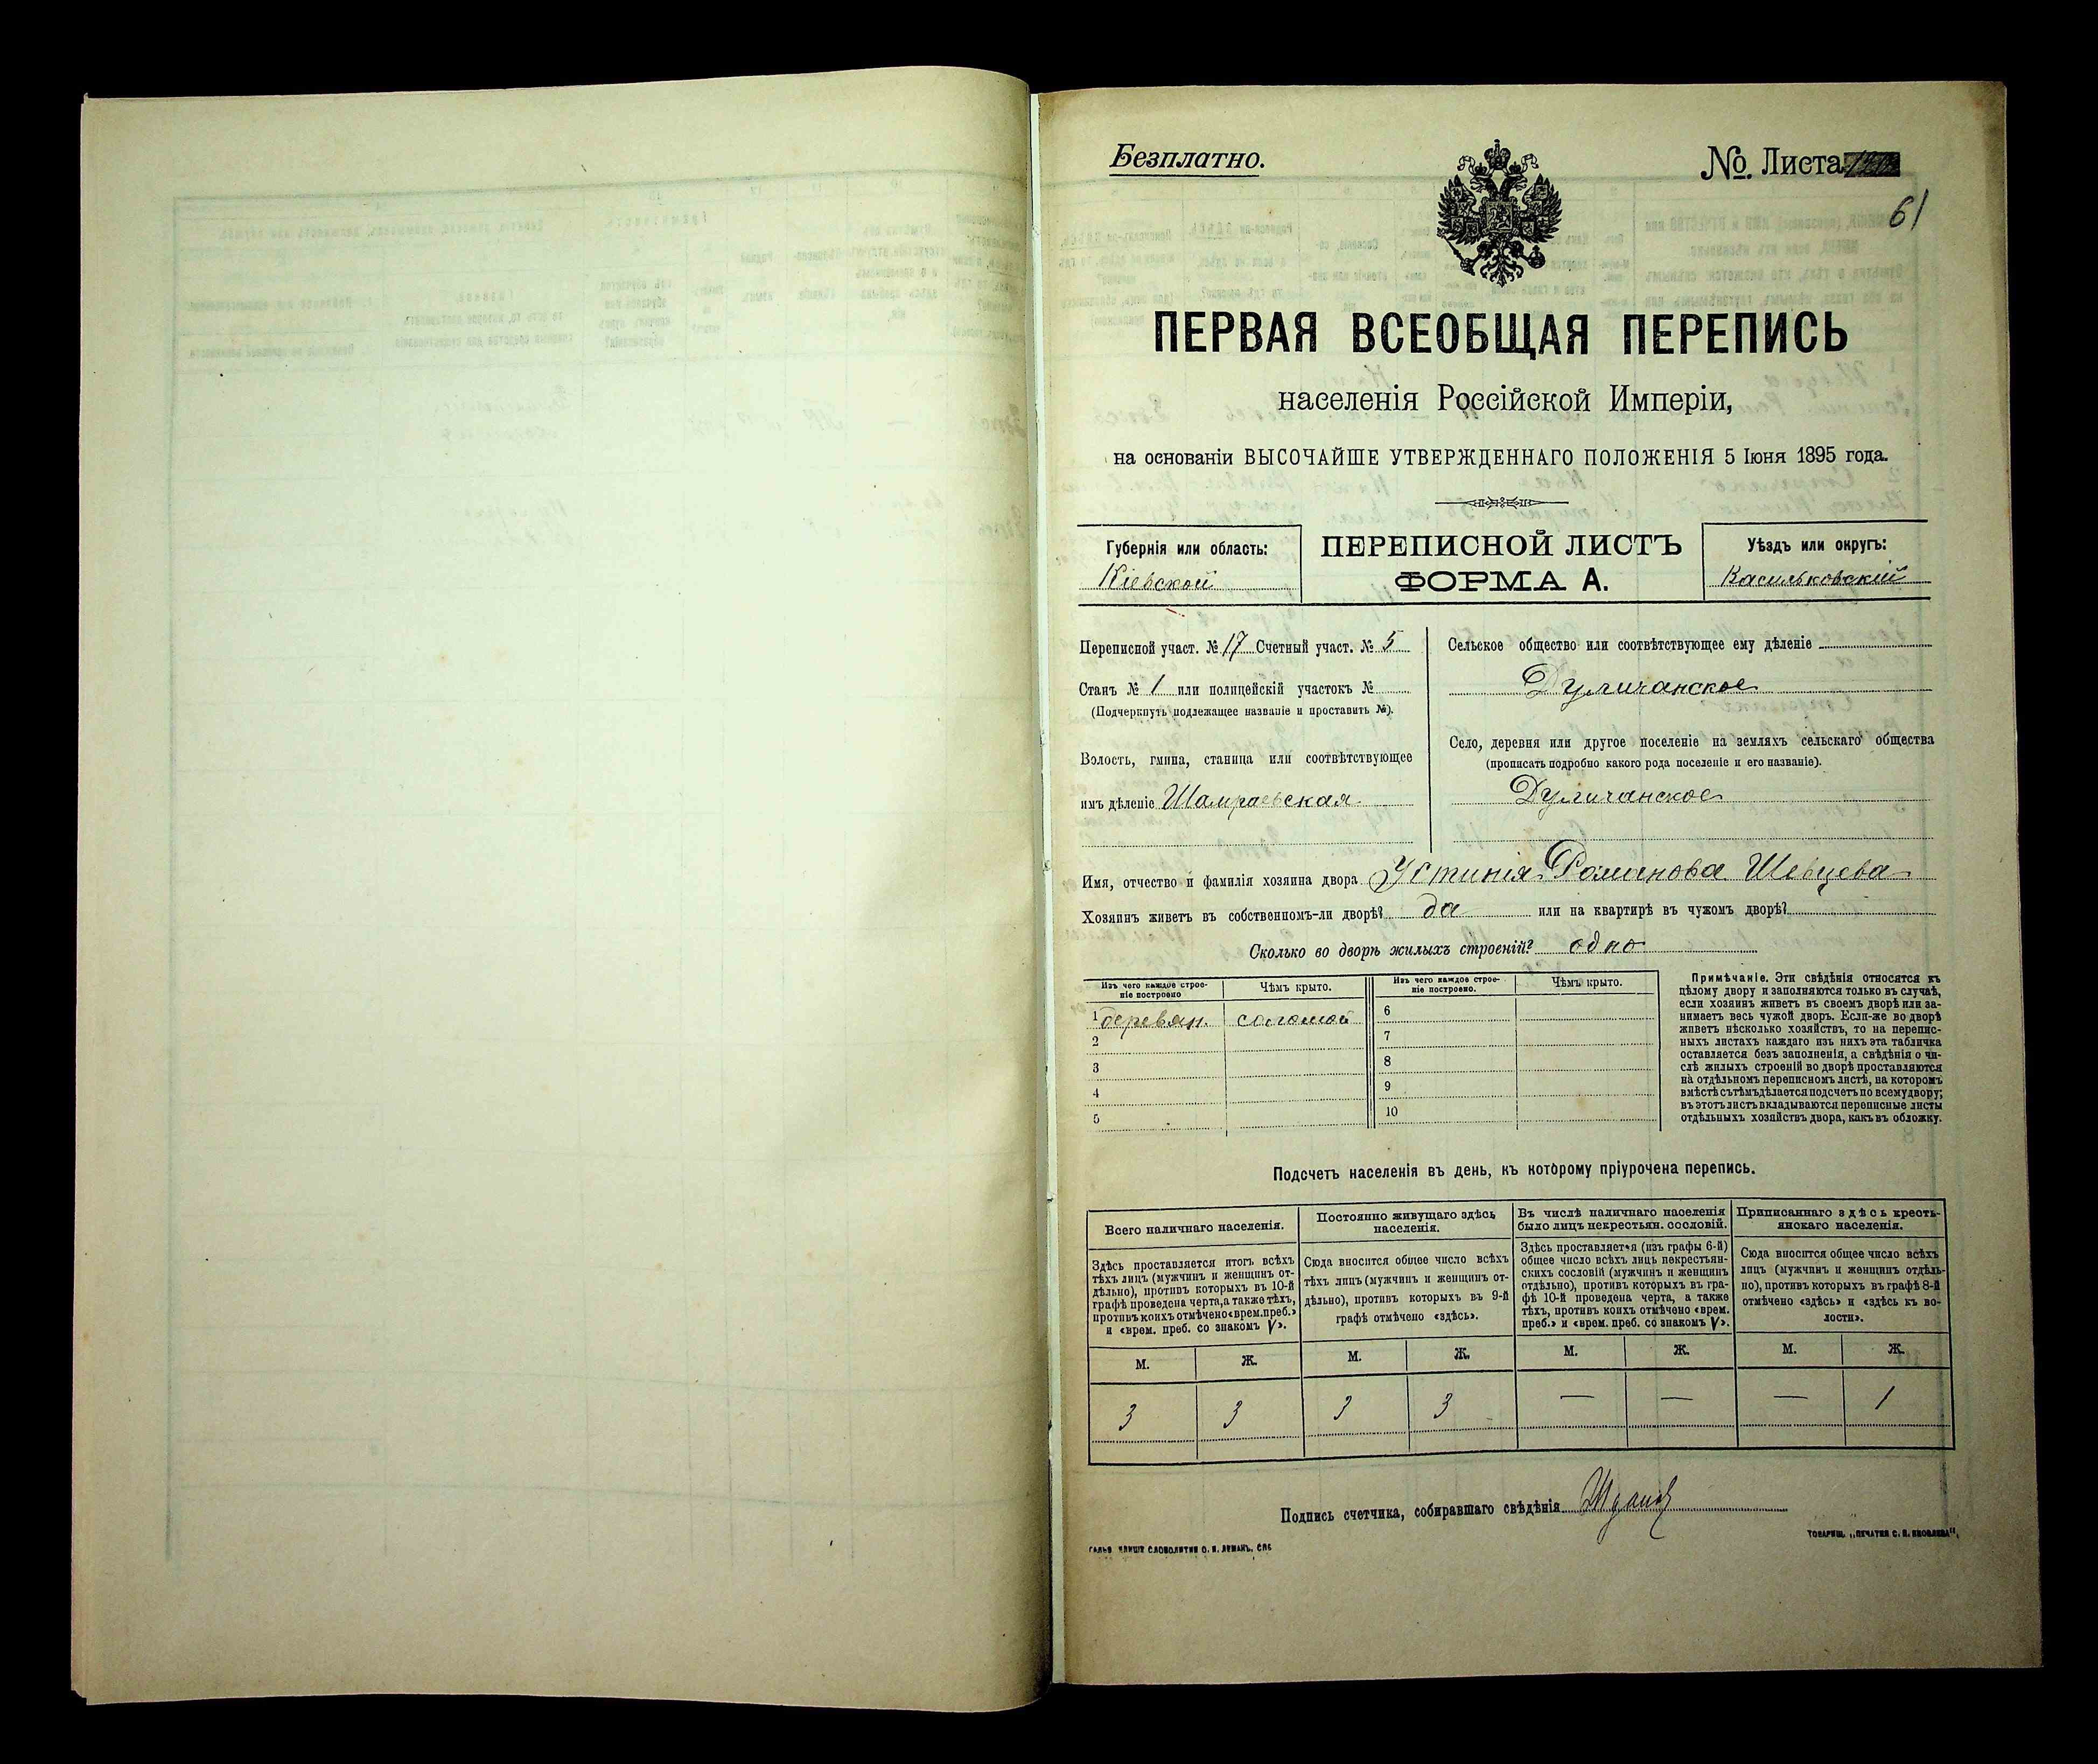 Безплатно.
№. Листа
61
ПЕРВАЯ ВСЕОБЩАЯ ПЕРЕПИСЬ
населенія Россійской Имперіи,
на основаніи ВЫСОЧАЙШЕ УТВЕРЖДЕННАГО ПОЛОЖЕНІЯ 5 Іюня 1895 года.
Губернія или область:
Кіевской
ПЕРЕПИСНОЙ ЛИСТЪ
ФОРМА А.
Уѣздъ или округъ:
Васильковскій
Переписной участ. № 17 Счетный участ. № 5
Станъ № 1 или полицейскій участокъ №
(Подчеркнуть подлежащее названіе и проставить №).
Волость, гмина, станица или соотвѣтствующее
имъ дѣленіе Шамраевская
Сельское общество или соотвѣтствующее ему дѣленіе
Дуличанское
Село, деревня или другое поселеніе на земляхъ сельскаго общества
(прописать подробно какого рода поселеніе и его названіе).
Дуличанское
Имя, отчество и фамилія хозяина двора Устинія Романова Шевцева
Хозяинъ живетъ въ собственномъ-ли дворѣ? да или на квартирѣ въ чужомъ дворѣ?
Сколько во дворѣ жилыхъ строеній? одно
Изъ чего каждое строе-
ніе построено
Чѣмъ крыто.
Изъ чего каждое строе-
ніе построено.
Чѣмъ крыто.
1 деревян. соломой
2
3
4
5
6
7
8
9
10
Примѣчаніе. Эти свѣдѣнія относятся къ
цѣлому двору и заполняются только въ случаѣ,
если хозяинъ живетъ въ своемъ дворѣ или за-
нимаетъ весь чужой дворъ. Если-же во дворѣ
живетъ нѣсколько хозяйствъ, то на перепис-
ныхъ листахъ каждаго изъ нихъ эта табличка
оставляется безъ заполненія, а свѣдѣнія о чи-
слѣ жилыхъ строеній во дворѣ проставляются
на отдѣльномъ переписномъ листѣ, на которомъ
вмѣстѣ съ тѣмъ дѣлается подсчетъ по всему двору;
въ этотъ листъ вкладываются переписные листы
отдѣльныхъ хозяйствъ двора, какъ въ обложку.
Подсчетъ населенія въ день, къ которому пріурочена перепись.
Всего наличнаго населенія.
Здѣсь проставляется итогъ всѣхъ
тѣхъ лицъ (мужчинъ и женщинъ от-
дѣльно), противъ которыхъ въ 10-й
графѣ проведена черта, а также тѣхъ,
противъ коихъ отмѣчено «врем. преб.»
и «врем. преб. со знакомъ V».
Постоянно живущаго здѣсь
населенія.
Сюда вносится общее число всѣхъ
тѣхъ лицъ (мужчинъ и женщинъ от-
дѣльно), противъ которыхъ въ 9-й
графѣ отмѣчено «здѣсь».
Въ числѣ наличнаго населенія
было лицъ некрестьян. сословій.
Здѣсь проставляется (изъ графы 6-й)
общее число всѣхъ лицъ некрестьян-
скихъ сословій (мужчинъ и женщинъ
отдѣльно), противъ которыхъ въ гра-
фѣ 10-й проведена черта, а также
тѣхъ, противъ коихъ отмѣчено «врем.
преб.» и «врем. преб. со знакомъ V».
Приписаннаго здѣсь кресть-
янскаго населенія.
Сюда вносится общее число всѣхъ
лицъ (мужчинъ и женщинъ отдѣль-
но), противъ которыхъ въ графѣ 8-й
отмѣчено «здѣсь» и «здѣсь къ во-
лости».
М. Ж. М. Ж. М. Ж. М. Ж.
3 3 3 3 — — — 1
Подпись счетчика, собиравшаго свѣдѣнія
ГАЛЬВ. КЛИШЕ СЛОВОЛИТНИ О. И. ЛЕМАНЪ, СПБ
ТОВАРИЩ. „ПЕЧАТНЯ С. П. ЯКОВЛЕВА",